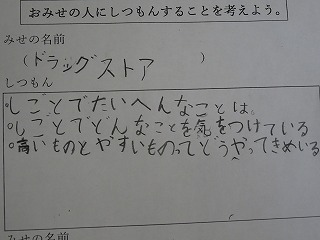 おみせの人にしつもんすることを考えよう。
みせの名前
(ドラッグストア)
しつもん
・しごとでたいへんなことは。
・しごとでどんなことを気をつけている
・高いものとやすいものってどうやってきめいる
みせの名前